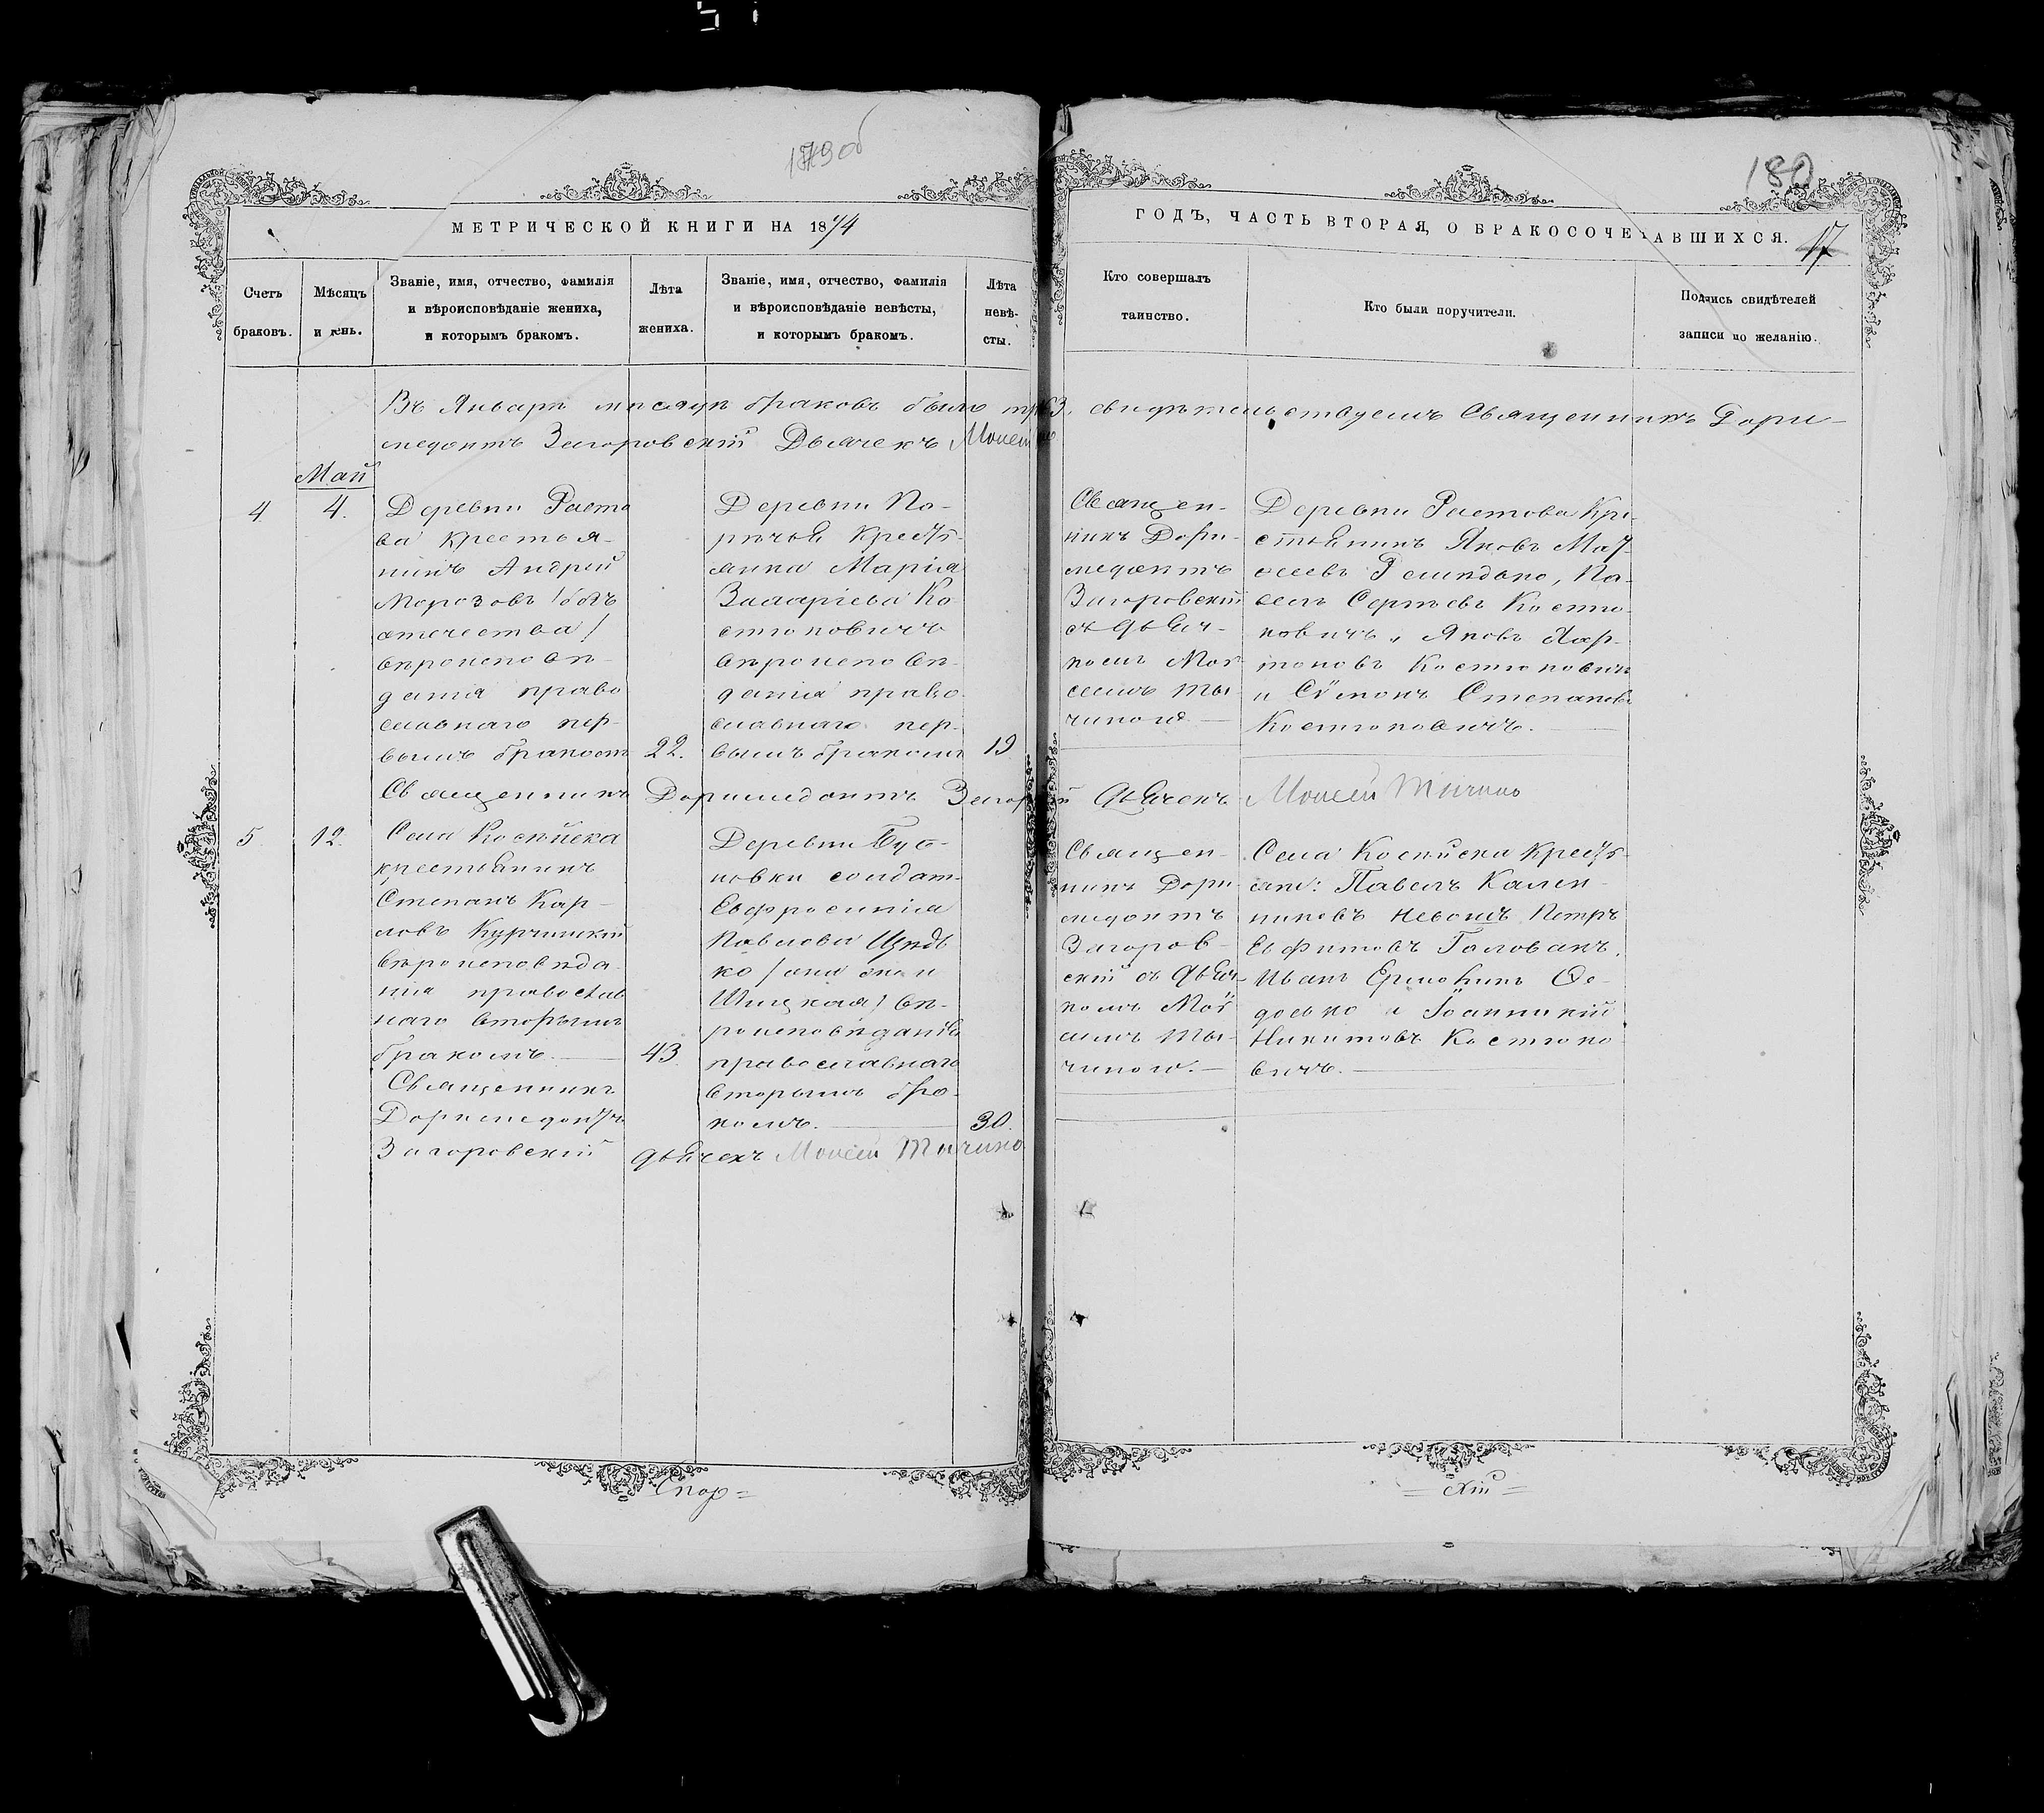 179 об
180
МЕТРИЧЕСКОЙ КНИГИ НА 1874
ГОДЪ, ЧАСТЬ ВТОРАЯ, О БРАКОСОЧЕТАВШИХСЯ.
17
Счетъ
браковъ.
Мѣсяцъ
и день.
Званіе, имя, отчество, фамилія
и вѣроисповѣданіе жениха,
и которымъ бракомъ.
Лѣта
жениха.
Званіе, имя, отчество, фамилія
и вѣроисповѣданіе невѣсты,
и которымъ бракомъ.
Лѣта
невѣ-
сты.
Кто совершалъ
таинство.
Кто были поручители.
Подпись свидѣтелей
записи по желанію.
Въ Январѣ мѣсяцѣ браковъ было три 3. свидѣтельствуемъ Священникъ Дори-
медонтъ Загоровскій Дьячекъ Моисей
Май
4
4.
Деревни Растo
ва крестья-
нинъ Андрей
Морозовъ /безъ
отчества/
вѣроисповѣ-
данія право
славнаго пер-
вымъ бракомъ
22.
Деревни По-
рѣчья Крестъ-
янка Марія
Захаріева Ко
стюковичъ
вѣроисповѣ-
данія право-
славнаго пер-
вымъ бракомъ
19
Священ-
никъ Дори-
медонтъ
Загоровскій
съ дьяч-
комъ Мои
сеемъ Ты-
чиною
Деревни Растова Кре-
стьянинъ Яковъ
Па-
велъ Сергѣевъ Костю-
ковичъ, Яковъ Хар-
тоновъ Костюковичъ
и Сѵмонъ Степановъ
Костюковичъ.
Священникъ Доримедонтъ Загор й дьячекъ Моисей Тычино
5
12.
Села
крестьянинъ
Степанъ Кар-
ловъ
вѣроисповѣда-
нія православ
наго вторымъ
бракомъ.
43
Священникъ
Доримедонтъ
Загоровскій дьячекъ Моисей Тычино
Деревни Буб-
новки солдат-
Евфросинія
Павлова
ко /она же и
/ вѣ-
роисповѣданія
православнаго
вторымъ бра-
комъ.
30.
Священ-
никъ Дори
медонтъ
Загоров-
скій съ дьяч-
комъ Мои
сеемъ Ты-
чиною.
Села Крестъ-
яне: Павелъ Кален-
никовъ Петръ
Евфимовъ Голованъ,
Иванъ
и Іоанникій
Никитовъ Костюко
вичъ.